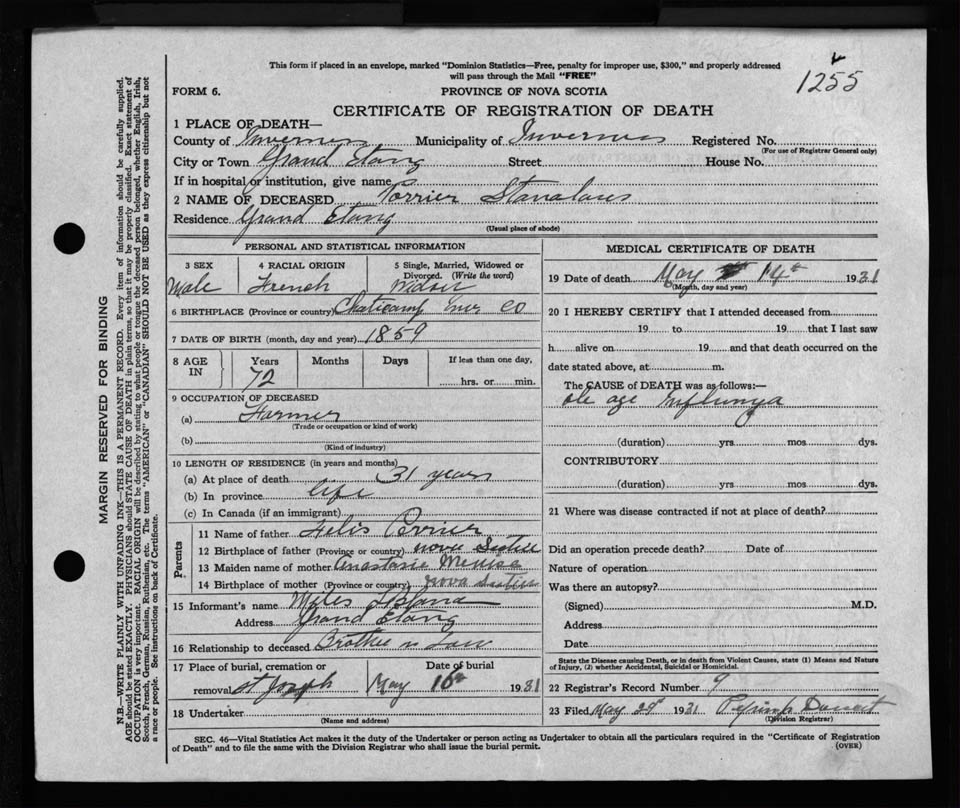 This form if placed in an envelope, marked "Dominion Statistics—Free, penalty for improper use, $300," and properly addressed
will pass through the Mail "FREE"
1255
FORM 6.
PROVINCE OF NOVA SCOTIA
CERTIFICATE OF REGISTRATION OF DEATH
1 PLACE OF DEATH—
County of Inverness Municipality of Inverness Registered No.
(For use of Registrar General only)
City or Town Grand Etang Street House No.
If in hospital or institution, give name
2 NAME OF DECEASED Porrier Stanalaus
Residence Grand Etang
(Usual place of abode)
PERSONAL AND STATISTICAL INFORMATION
3 SEX 4 RACIAL ORIGIN 5 Single, Married, Widowed or
Divorced. (Write the word)
Male French
6 BIRTHPLACE (Province or country) Chaticamp Inv Co
7 DATE OF BIRTH (month, day and year) 1859
8 AGE IN Years Months Days If less than one day,
72 hrs. or min.
9 OCCUPATION OF DECEASED
(a) Farmer
(Trade or occupation or kind of work)
(b)
(Kind of industry)
10 LENGTH OF RESIDENCE (in years and months)
(a) At place of death 31 years
(b) In province life
(c) In Canada (if an immigrant)
Parents
11 Name of father Felis Perrier
12 Birthplace of father (Province or country) nova Scotia
13 Maiden name of mother Anastasie
14 Birthplace of mother (Province or country) nova Scotia
15 Informant's name
Address Grand Etang
16 Relationship to deceased Brother n Law
17 Place of burial, cremation or Date of burial
removal St Joseph May 16th 1931
18 Undertaker
(Name and address)
MEDICAL CERTIFICATE OF DEATH
19 Date of death May 14th 1931
(Month, day and year)
20 I HEREBY CERTIFY that I attended deceased from
19 to 19 that I last saw
h alive on 19 and that death occurred on the
date stated above, at m.
The CAUSE of DEATH was as follows:—
ole age Influnza
(duration) yrs. mos. dys.
CONTRIBUTORY
(duration) yrs. mos. dys.
21 Where was disease contracted if not at place of death?
Did an operation precede death? Date of
Nature of operation
Was there an autopsy?
(Signed) M.D.
Address
Date
State the Disease causing Death, or in death from Violent Causes, state (1) Means and Nature
of Injury, (2) whether Accidental, Suicidal or Homicidal.
22 Registrar's Record Number 9
23 Filed May 1931
(Division Registrar)
SEC. 46—Vital Statistics Act makes it the duty of the Undertaker or person acting as Undertaker to obtain all the particulars required in the "Certificate of Registration
of Death" and to file the same with the Division Registrar who shall issue the burial permit.
(OVER)
MARGIN RESERVED FOR BINDING
N.B.—WRITE PLAINLY WITH UNFADING INK—THIS IS A PERMANENT RECORD. Every item of information should be carefully supplied.
AGE should be stated EXACTLY. PHYSICIANS should STATE CAUSE OF DEATH in plain terms, so that it may be properly classified. Exact statement of
OCCUPATION is very important. RACIAL ORIGIN will be described by stating to what people or tongue the deceased person belonged, whether English, Irish,
Scotch, French, German, Russian, Ruthenian, etc. The terms "AMERICAN" or "CANADIAN" SHOULD NOT BE USED as they express citizenship but not
a race or people. See instructions on back of Certificate.